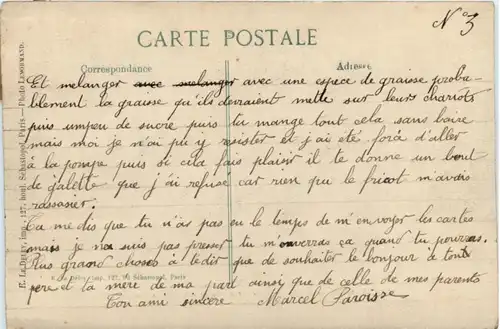 N° 3
CARTE POSTALE
Correspondance
Adresse
Et melanger avec melanger avec une espece de graisse probu-
blement la graisse qu'ils devraient mettre sur leurs chariots
puis umpeu de sucre puis tu mange tout cela sans boire
mais moi je n'ai pu y resister et j'ai été forcé d'aller
à la pompe puis si cela fais plaisir il te donne un bout
de galette que j'ai refuse car rien qui le fricot m'avais
rassasier.
Ta me dis que tu n'as pas eu le temps de m'envoyer les cartes
mais je ne suis pas presser tu m'enverras ça quand tu pourras.
Plus grand choses à te dir que de souhaiter le bonjour à ton
pere et ta mère de ma part ainsi que de celle de mes parents
Ton ami sincère Marcel Paroisse
127, boul. Sébastopol, Paris — Photo Lemormand.